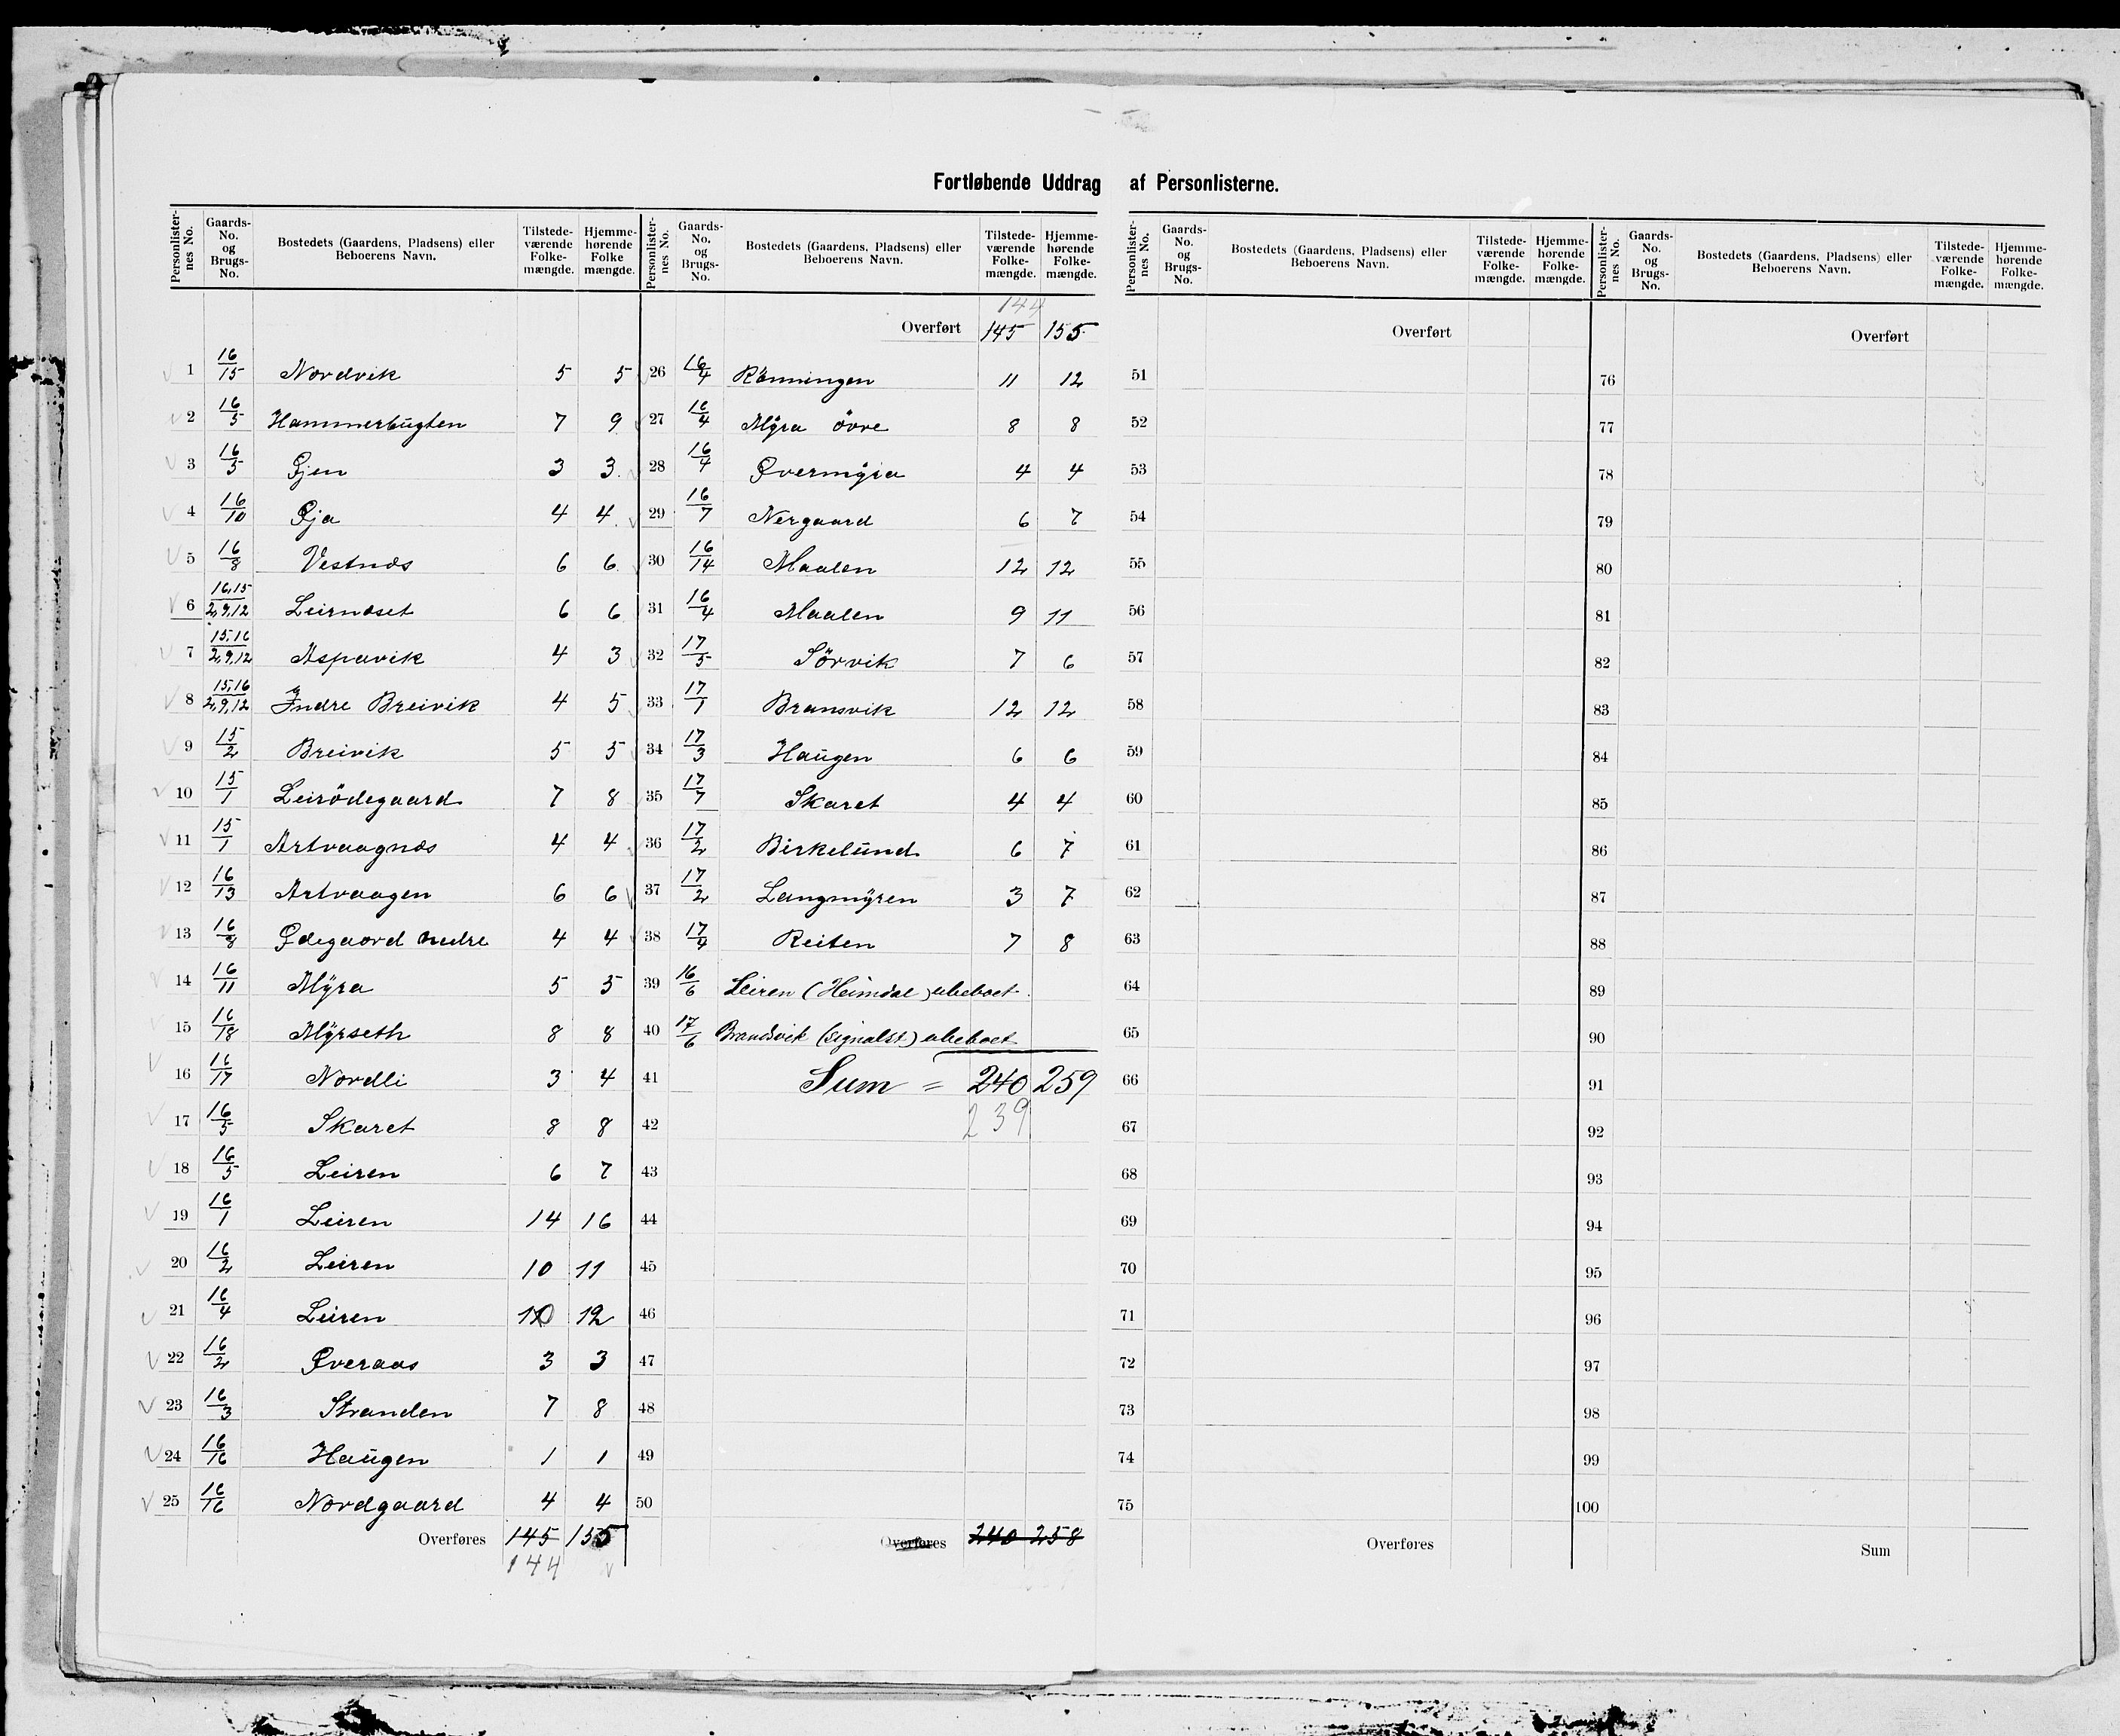 Fortløbende Uddrag af Personlisterne.
Personlister-nes No. | Gaards-No. og Brugs-No. | Bostedets (Gaardens, Pladsens) eller Beboerens Navn. | Tilstede-værende Folke-mængde. | Hjemme-hørende Folke mængde.
1 16/15 Nordvik 5 5
2 16/5 Hammerbugten 7 9
3 16/5 Øjen 3 3
4 16/10 Øja 4 4
5 16/8 Vestnæs 6 6
6 16,15/2,9,12 Leirnæset 6 6
7 15,16/2,9,12 Aspavik 4 3
8 15,16/2,9,12 Indre Breivik 4 5
9 15/2 Breivik 5 5
10 15/1 Leirödegaard 7 8
11 15/1 Artvaagnæs 4 4
12 16/13 Artvaagen 6 6
13 16/8 Ødegaard nedre 4 4
14 16/11 Myra 5 5
15 16/18 Myrseth 8 8
16 16/17 Nordli 3 4
17 16/5 Skaret 8 8
18 16/5 Leiren 6 7
19 16/1 Leiren 14 16
20 16/2 Leiren 10 11
21 16/4 Leiren 10 12
22 16/2 Øveraas 3 3
23 16/3 Stranden 7 8
24 16/16 Haugen 1 1
25 16/16 Nordgaard 4 4
Overføres 145 155
144
Personlister-nes No. | Gaards-No. og Brugs-No. | Bostedets (Gaardens, Pladsens) eller Beboerens Navn. | Tilstede-værende Folke-mængde. | Hjemme-hørende Folke-mængde.
144
Overført 145 155
26 16/4 Rönningen 11 12
27 16/4 Myra övre 8 8
28 16/4 Øvermyra 4 4
29 16/7 Nergaard 6 7
30 16/14 Maalen 12 12
31 16/4 Maalen 9 11
32 17/5 Sörvik 7 6
33 17/1 Bransvik 12 12
34 17/3 Haugen 6 6
35 17/7 Skaret 4 4
36 17/2 Birkelund 6 7
37 17/2 Langmyren 3 7
38 17/4 Reiten 7 8
39 16/6 Leiren (Heimdal) ubeboet.
40 17/6 Brandsvik (signalst) ubeboet
41 Sum = 240 259
42 239
43
44
45
46
47
48
49
50
Overføres 240 258
Personlister-nes No. | Gaards-No. og Brugs-No. | Bostedets (Gaardens, Pladsens) eller Beboerens Navn. | Tilstede-værende Folke-mængde. | Hjemme-hørende Folke-mængde.
Overført
51
52
53
54
55
56
57
58
59
60
61
62
63
64
65
66
67
68
69
70
71
72
73
74
75
Overføres
Personlister-nes No. | Gaards-No. og Brugs-No. | Bostedets (Gaardens, Pladsens) eller Beboerens Navn. | Tilstede-værende Folke-mængde. | Hjemme-hørende Folke-mængde.
Overført
76
77
78
79
80
81
82
83
84
85
86
87
88
89
90
91
92
93
94
95
96
97
98
99
100
Sum